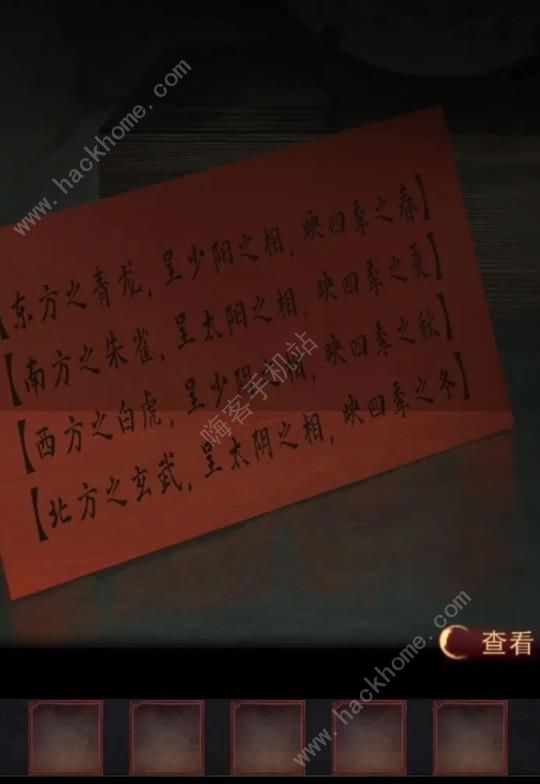 www.hackhome.com
【东方之青龙，呈少阳之相，映四季之春】
【南方之朱雀，呈太阳之相，映四季之夏】
【西方之白虎，呈少阴之相，映四季之秋】
嗨客手机站
【北方之玄武，呈太阴之相，映四季之冬】
查看
www.hackhome.com